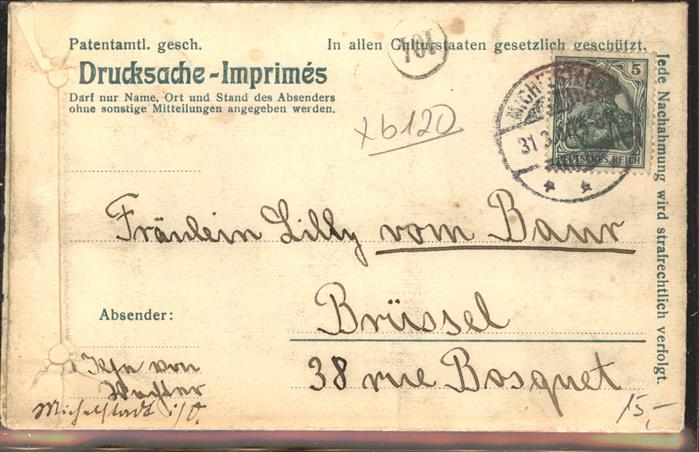 Patentamtl. gesch.
In allen Culturstaaten gesetzlich geschützt.
Drucksache-Imprimés
Darf nur Name, Ort und Stand des Absenders
ohne sonstige Mitteilungen angegeben werden.
104
xb120
5
DEUTSCHES REICH
31.3.
Jede Nachahmung wird strafrechtlich verfolgt.
Fräulein Lilly vom Baur
Brüssel
38 rue Bosquet
Absender:
von
Michelstadt i/O.
15,-